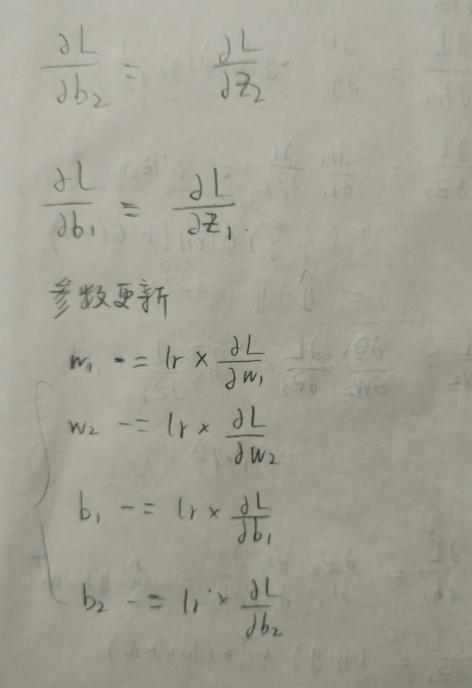 ∂L/∂b₂ = ∂L/∂z₂
∂L/∂b₁ = ∂L/∂z₁.
参数更新
w₁ -= lr × ∂L/∂w₁
w₂ -= lr × ∂L/∂w₂
b₁ -= lr × ∂L/∂b₁
b₂ -= lr × ∂L/∂b₂